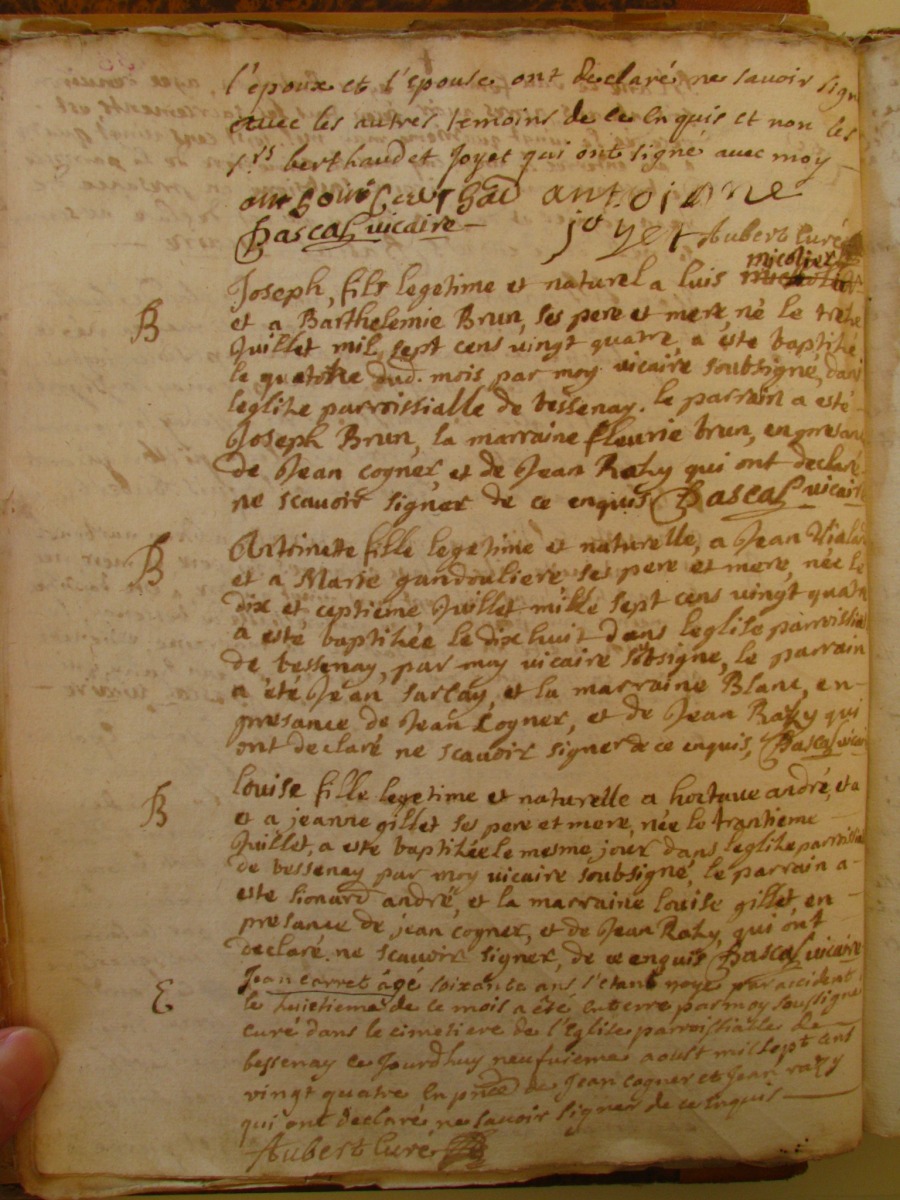 l'epoux et l'epouse ont declaré ne savoir sign
avec les autres temoins de ce Enquis et non les
srs berthaud et Joyet qui ont signé avec moy
antoine
Pascal vicaire joyet Aubert curé
micolier
Joseph, fils legetime et naturel a luis
B et a Barthelemie Brun, ses pere et mere, né le treze
Juillet mil sept cens vingt quatre a este baptizé
le quatorze dud. mois par moy vicaire soubsigné, dans
leglize parroissialle de bessenay. le parrain a esté
Joseph Brun, la marraine fleurie brun, en presan
de Jean cogner, et de Jean Razy qui ont declaré
ne scavoir signer de ce enquis Pascal vicaire
Antoinette fille legetime et naturelle, a Jean Viala
B et a Marie gandouliere ses pere et mere, née le
dix et ceptieme Juillet mille sept cens vingt quatr
a esté baptizée le dix huit dans leglize parroissial
de bessenay, par moy vicaire sobsigne, le parrain
a été Jean sarlay, et la marraine Blanc, en
presance de Jean Cogner, et de Jean Razy qui
ont declaré ne scavoir signer de ce enquis, Pascal vicair
Louise fille legetime et naturelle a hoctave andré, et a
B et a jeanne gillet ses pere et mere, née le trantieme
Juillet, a esté baptizée le mesme jour dans leglize parroissial
de bessenay par moy vicaire soubsigné, le parrain a
este lionard andré, et la marraine louise gillet en
presance de jean cogner, et de Jean Razy, qui ont
declaré ne scavoir signer, de ce enquis Pascal vicaire
Jean carret âgé soixante ans s'etant noyé par accident
E le huietieme de ce mois a été enterre par moy soussigné
curé dans le cimetiere de l'Eglise parroissialle de
bessenay ce Jourdhuy neufvieme aoust mil sept cens
vingt quatre En pnce de Jean cogner et Jean razy
qui ont declaré ne savoir signer de ce Enquis
Aubert curé